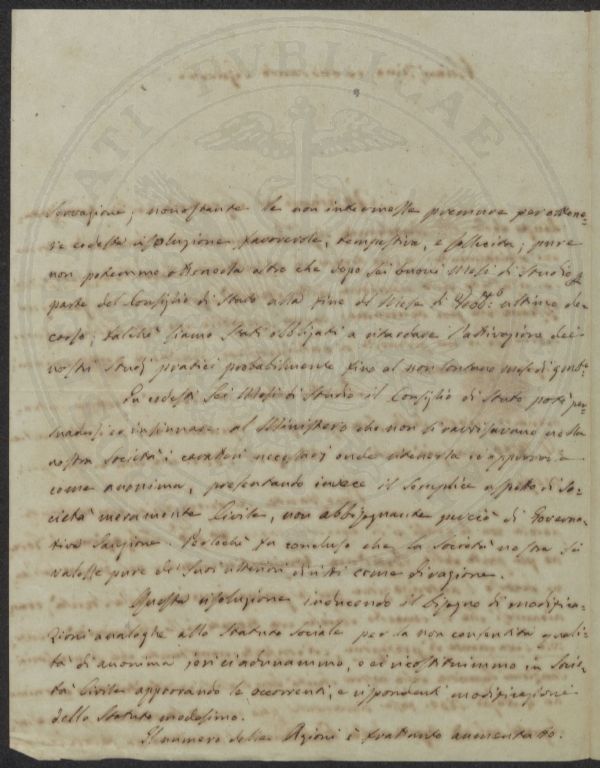 PUBLICAE
provazione; nonostante le non intermesse premure per ottene-
re codesta risoluzione favorevole, tempestiva, e sollecita; pure
non potemmo ottenerla altro che dopo sei buoni Mesi di Studio
parte del Consiglio di Stato alla fine del Mese di ultimo de-
corso; talchè siamo stati obbligati a ritardare l'attivazione dei
nostri studj pratici probabilmente fino al non lontano mese di
In codesti sei Mesi di Studio il Consiglio di Stato potè per-
suadersi e insinuare al Ministero che non si ravvisavano nella
nostra Società i caratteri necessarj onde ritenerla ed approvarla
come anonima, presentando invece il semplice aspetto di So-
cietà meramente Civile, non abbisognante perciò di Governa-
tiva Sanzione. Perlochè fu concluso che la Società nostra si
valesse pure dei suoi ulteriori diritti come di ragione.
Questa risoluzione inducendo il bisogno di modifica-
zioni analoghe allo Statuto Sociale per la non consentita quali-
tà di anonima jeri ci adunammo, e ci ricostituimmo in Socie-
tà Civile apportando le occorrenti, e rispondenti modificazioni
dello Statuto medesimo.
Il numero delle Azioni è frattanto aumentato.